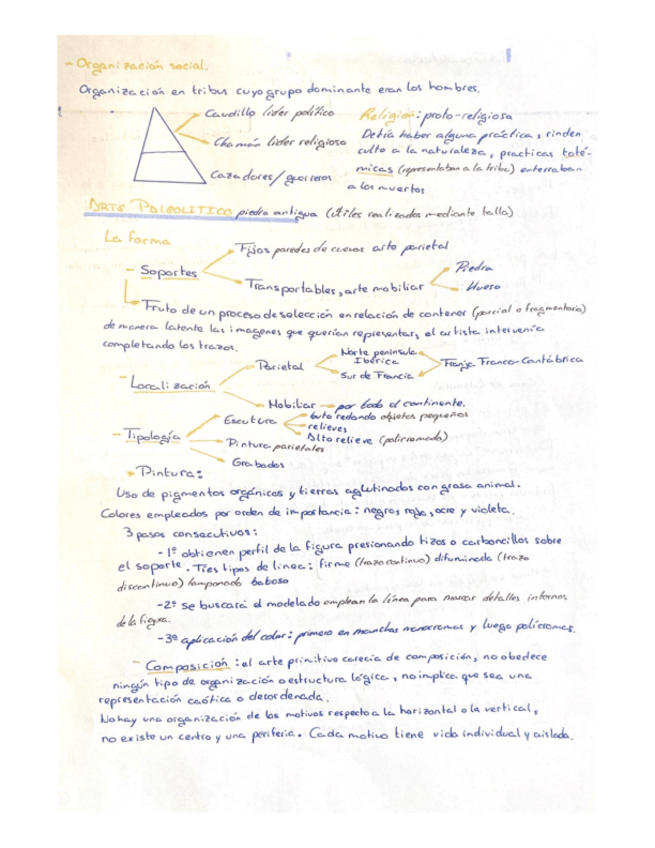 - Organización social.
Organización en tribus cuyo grupo dominante eran los hombres.
Caudillo líder político
Chamán líder religioso
Cazadores/guerreros
Religión: proto-religiosa
Debía haber alguna práctica, rinden
culto a la naturaleza, practicas toté-
micas (representaban a la tribu) enterraban
a los muertos
ARTE PALEOLITICO piedra antigua (Útiles realizados mediante talla)
La forma
- Soportes
Fijos paredes de cuevas arte parietal
Transportables, arte mobiliar
Piedra
Hueso
Fruto de un proceso de selección en relación de contener (parcial o fragmentaria)
de manera latente las imagenes que querían representar, el artista intervenía
completando los trazos.
- Localización
Parietal
Norte peninsula
Ibérica
Sur de Francia
Franja Franco-Cantábrica
Mobiliar por todo el continente.
- Tipología
Escultura
bulto redondo objetos pequeños
relieves
Alto relieve (policromado)
Pintura parietales
Grabados
Pintura:
Uso de pigmentos orgánicos y tierras aglutinados con grasa animal.
Colores empleados por orden de importancia: negro, rojo, ocre y violeta.
3 pasos consecutivos:
-1º obtienen perfil de la figura presionando tizos o carboncillos sobre
el soporte. Tres tipos de linea: firme (trazo continuo) difuminada (trazo
discontinuo) tamponado baboso
-2º se buscará el modelado emplean la línea para marcar detalles internos
de la figura.
-3º aplicación del color: primero en manchas monocromas y luego polícromas.
- Composición: el arte primitivo carecía de composición, no obedece
ningún tipo de organización o estructura lógica, no implica que sea una
representación caótica o desordenada.
No hay una organización de los motivos respecto a la horizontal o la vertical,
no existe un centro y una periferia. Cada motivo tiene vida individual y aislada.